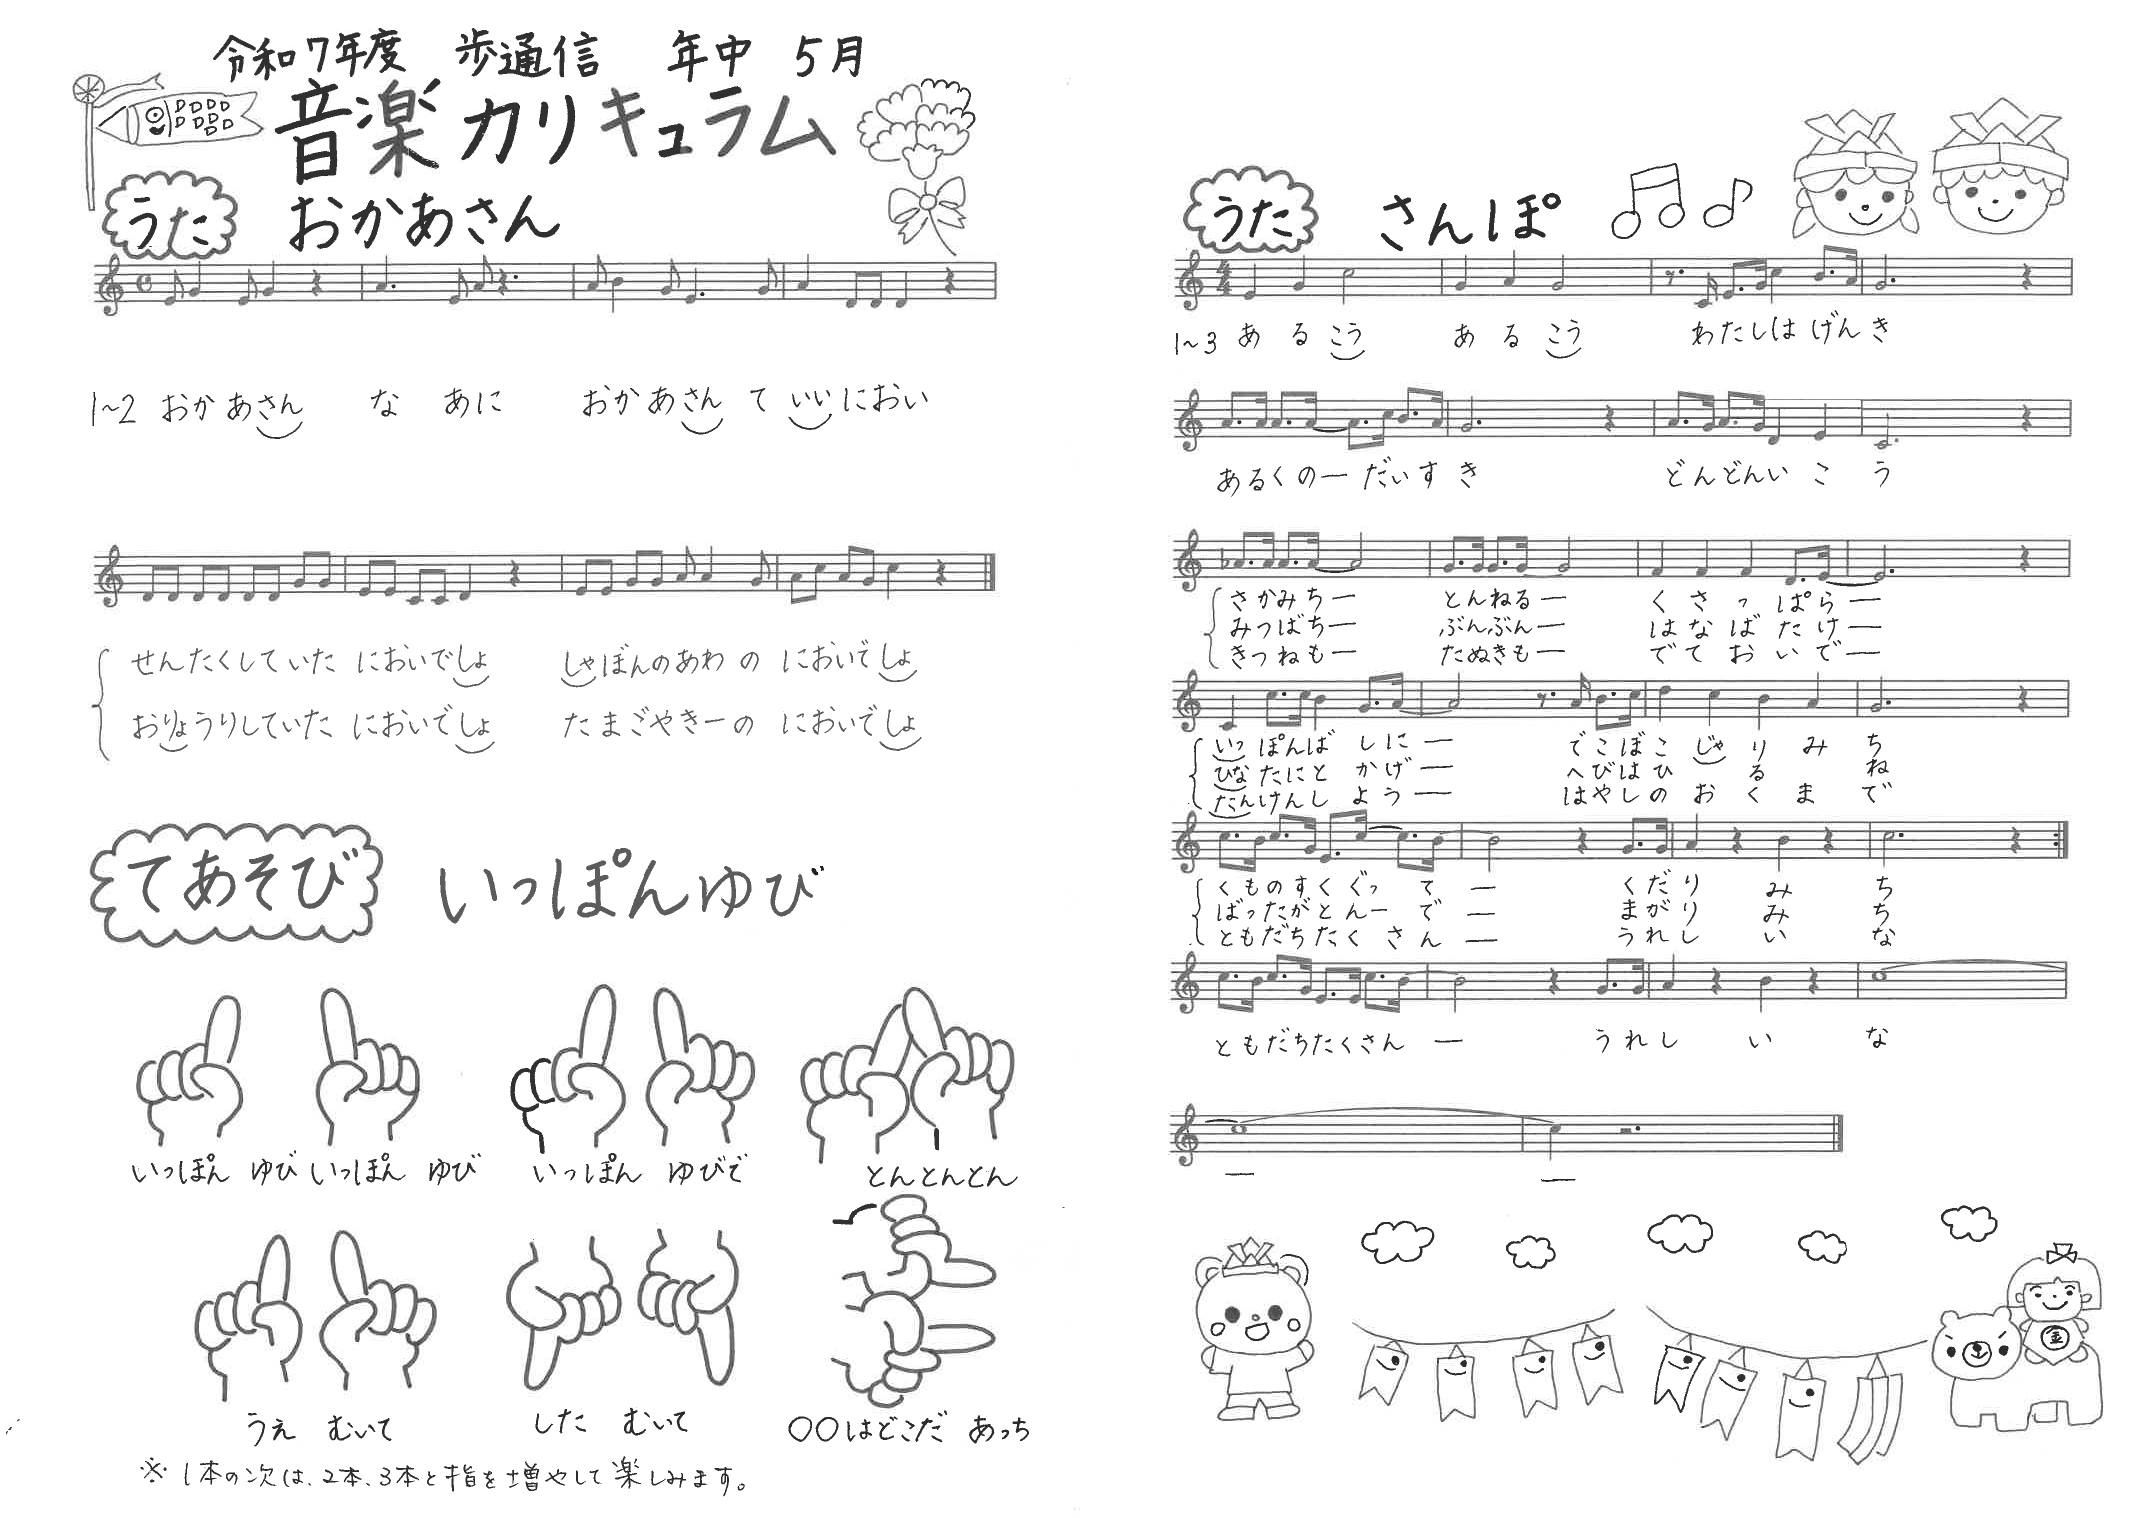 令和7年度 歩通信 年中 5月
音楽カリキュラム
うた おかあさん
1〜2 おかあさん な あに おかあさん て いいにおい
せんたくしていた においでしょ しゃぼんのあわ の においでしょ
おりょうりしていた においでしょ たまごやきーの においでしょ
てあそび いっぽんゆび
いっぽん ゆび いっぽん ゆび いっぽん ゆびで とんとんとん
うえ むいて したむいて 〇〇はどこだ あっち
※1本の次は、2本、3本と指を増やして楽しみます。
うた さんぽ
1〜3 あ る こう あ る こう わたしは げん き
あるくのー だいすき どんどんい こ う
さかみちー とんねるー く さ っ ぱ らー
みつばちー ぶんぶんー は な ば た けー
きつねもー たぬきもー で て お い でー
いっ ぽんば しにー でこぼこ じゃ り み ち
ひな たにと かげー へびはひ る ね
たんけんし ようー はやしの お く ま で
くものすくぐっ てー くだり み ち
ばったがとんー でー まがり み ち
ともだちたく さんー うれし い な
ともだちたくさん ー うれし い な
ー ー
金